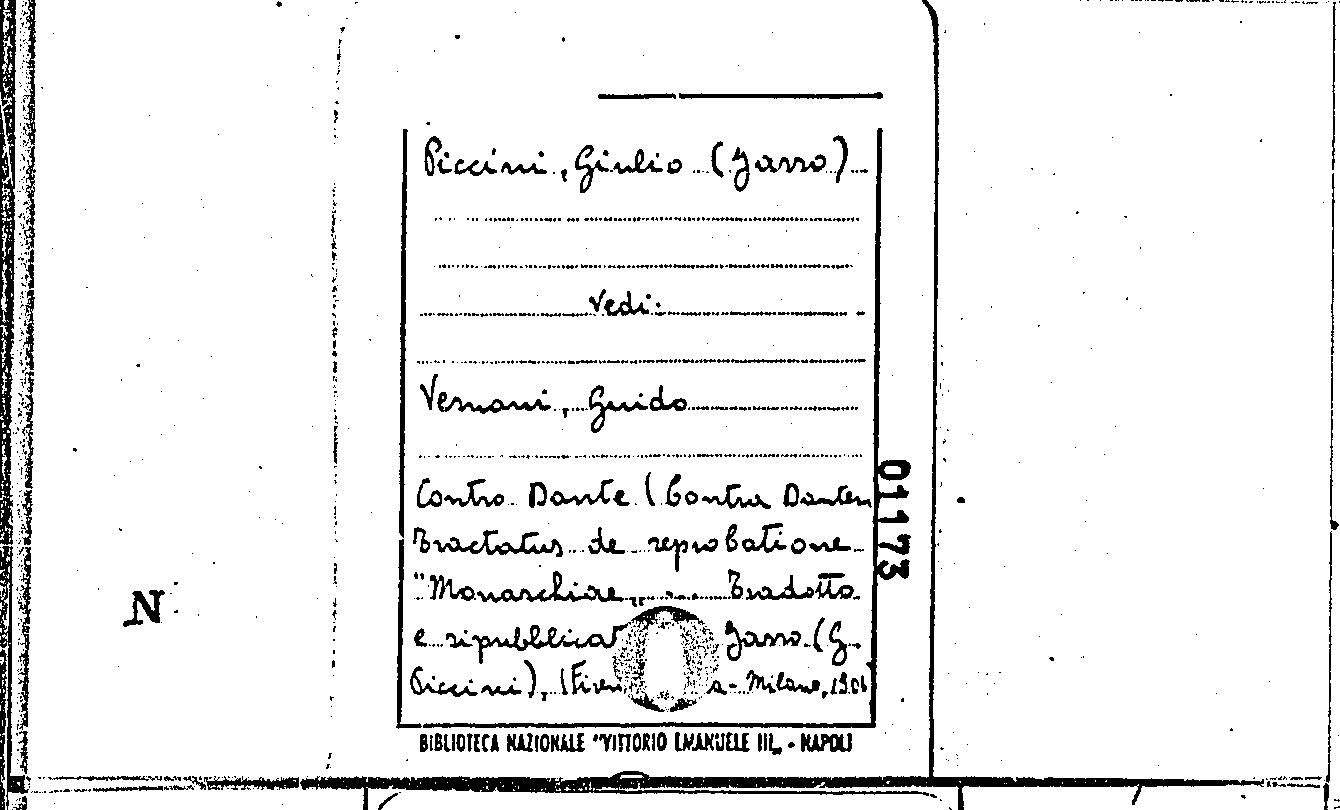 Piccini, Giulio (Jarro)
Vedi:
Vernani, Guido
Contro Dante (Contra Dantem
Tractatus de reprobatione
"Monarchiae„ ... Tradotto
e ripubblicat Jarro (G.
Piccini), (Firen a - Milano, 1906
01173
N
BIBLIOTECA NAZIONALE "VITTORIO EMANUELE III„ - NAPOLI